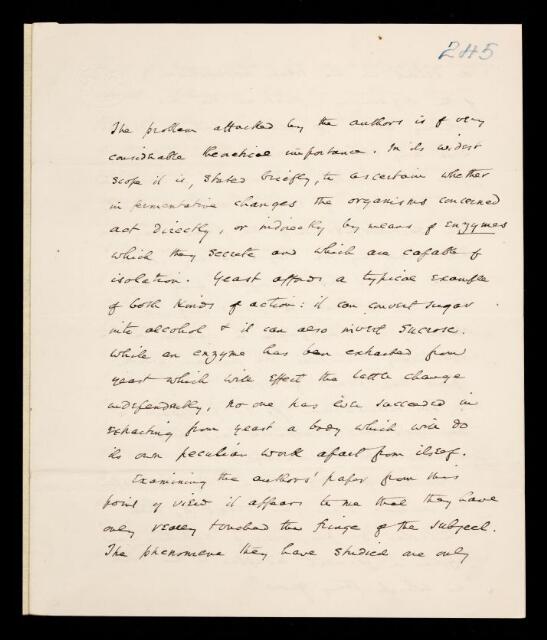 245
The problem attacked by the authors is of very
considerable theoretical importance. In its widest
scope it is, stated briefly, to ascertain whether
in fermentative changes the organisms concerned
act directly, or indirectly by means of enzymes
which they secrete and which are capable of
isolation. Yeast affords a typical example
of both kinds of action: it can convert sugar
into alcohol & it can also invert sucrose.
While an enzyme has been extracted from
yeast which will effect the latter change
independently, no one has ever succeeded in
extracting from yeast a body which will do
its own peculiar work apart from itself.
Examining the authors' paper from this
point of view it appears to me that they have
only really touched the fringe of the subject.
The phenomena they have studied are only